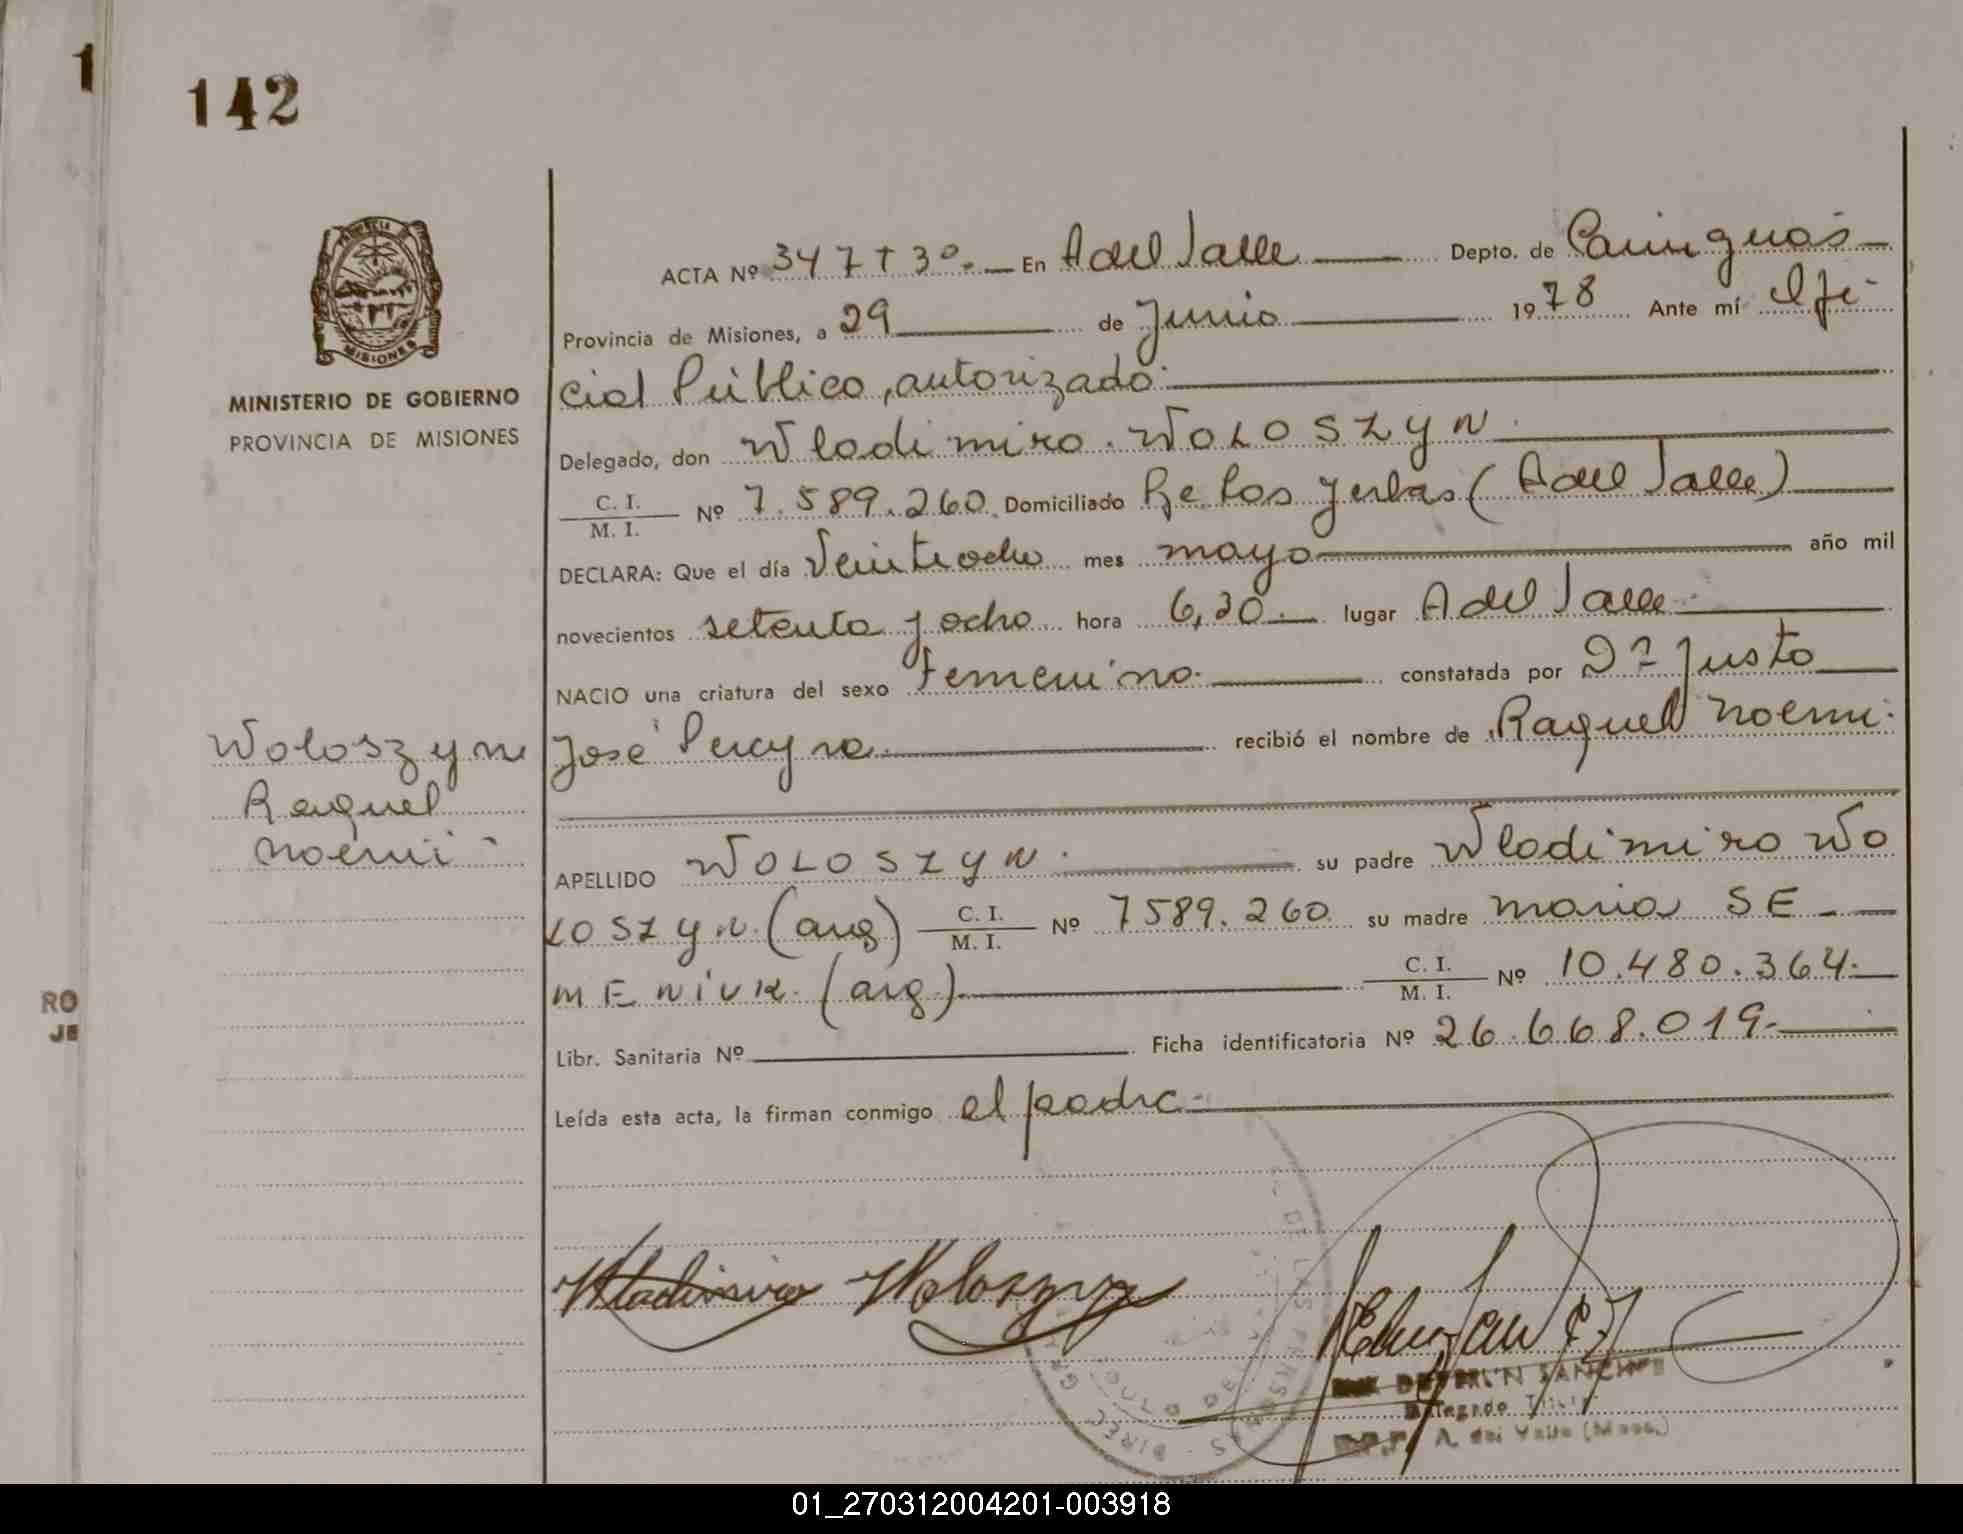 1
142
PROVINCIA DE
MISIONES
MINISTERIO DE GOBIERNO
PROVINCIA DE MISIONES
ACTA Nº 347 T 3º.- En A del Valle Depto. de Cainguás
Provincia de Misiones, a 29 de Junio 1978 Ante mí Ofi-
cial Público, autorizado.
Delegado, don Wladimiro WOLOSZYN.
C. I.
M. I. Nº 7.589.260. Domiciliado Pe los Yerbas (A del Valle)
DECLARA: Que el día Veintiocho mes mayo año mil
novecientos setenta y ocho hora 6,30.- lugar A del Valle.
NACIO una criatura del sexo Femenino. constatada por Dº Justo
José Pereyra recibió el nombre de Raquel Noemi.
Woloszyn
Raquel
Noemi -
APELLIDO WOLOSZYN. su padre Wladimiro WO
LOSZYN. (arg) C. I.
M. I. Nº 7589.260 su madre Maria SE -
MENIUK. (arg.) C. I.
M. I. Nº 10.480.364.
RO
JE
Libr. Sanitaria Nº Ficha identificatoria Nº 26.668.019.-
Leída esta acta, la firman conmigo el padre-
Wladimiro Woloszyn
DE LAS PERSONAS
SANCHEZ
Delegado Titular
A. del Valle (Mnes.)
01_270312004201-003918